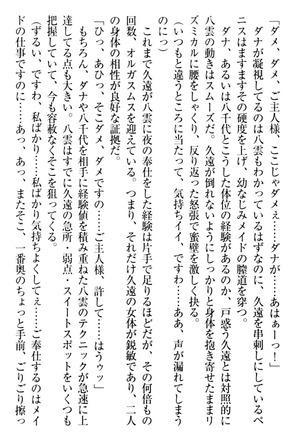 「ダメ、ダメ、ご主人様、ここじゃダメぇ……ダナが……あぁーっ！」
ダナが凝視してるのは八雲もわかっているはずなのに、久遠を串刺しにしているペ
ニスはますますその硬度を上げ、幼なじみメイドの膣道を穿つ。
ダナ、あるいは八千代とこうした体位の経験があるのか、戸惑う久遠とは対照的に
八雲の動きはスムーズだ。久遠が倒れないようにしっかりと身体を抱き寄せたままリ
ズミカルに腰をしゃくり、反り返った怒張で蜜壁を激しく抉る。
（いつもと違うところに当たって、気持ちイイ、です……わ……ああっ、声が漏れてし
まう……っ）
これまで久遠が八雲に夜の奉仕をした経験は片手で足りるほどだが、その何倍もの
回数、オルガスムスを迎えている。つまり、それだけ久遠の女体が鋭敏であり、二人
の身体の相性が良好な証拠だ。
「ひっ、あひっ、そこダメ、ダメです……ご主人様、許して……はうゥッ」
もちろん、ダナや八千代を相手に経験値を積み重ねた八雲のテクニックが急速に上
達してる点も大きい。八雲はすでに久遠の急所・弱点・スイートスポットをいくつも
把握していて、今も容赦なくそこを狙ってくる。
（ずるい、ですわ、私ばかり……私ばかり気持ちよくして……ご奉仕するのはメイ
ドの仕事ですのに……あっ、あっ、またそこ、一番奥のちょっと手前、ごりごり擦っ